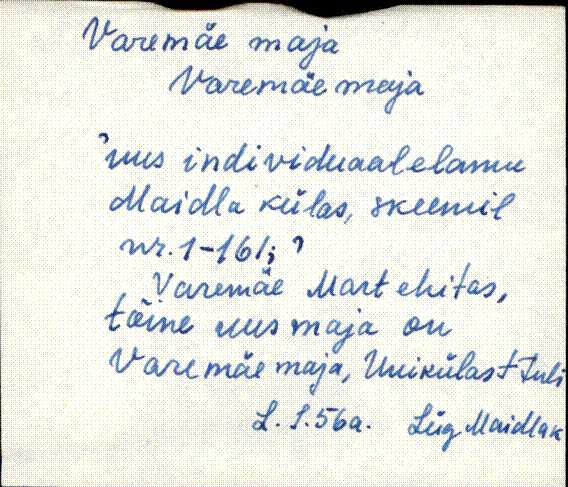 Varemäe maja
Varemäe maja
'uus individuaalelamu
Maidla külas, skeemil
nr. 1-161; '
Varemäe Mart ehitas,
tõine uus maja on
Varemäe maja, Unikülast tuli
L. S. 56a. Lüg Maidla k